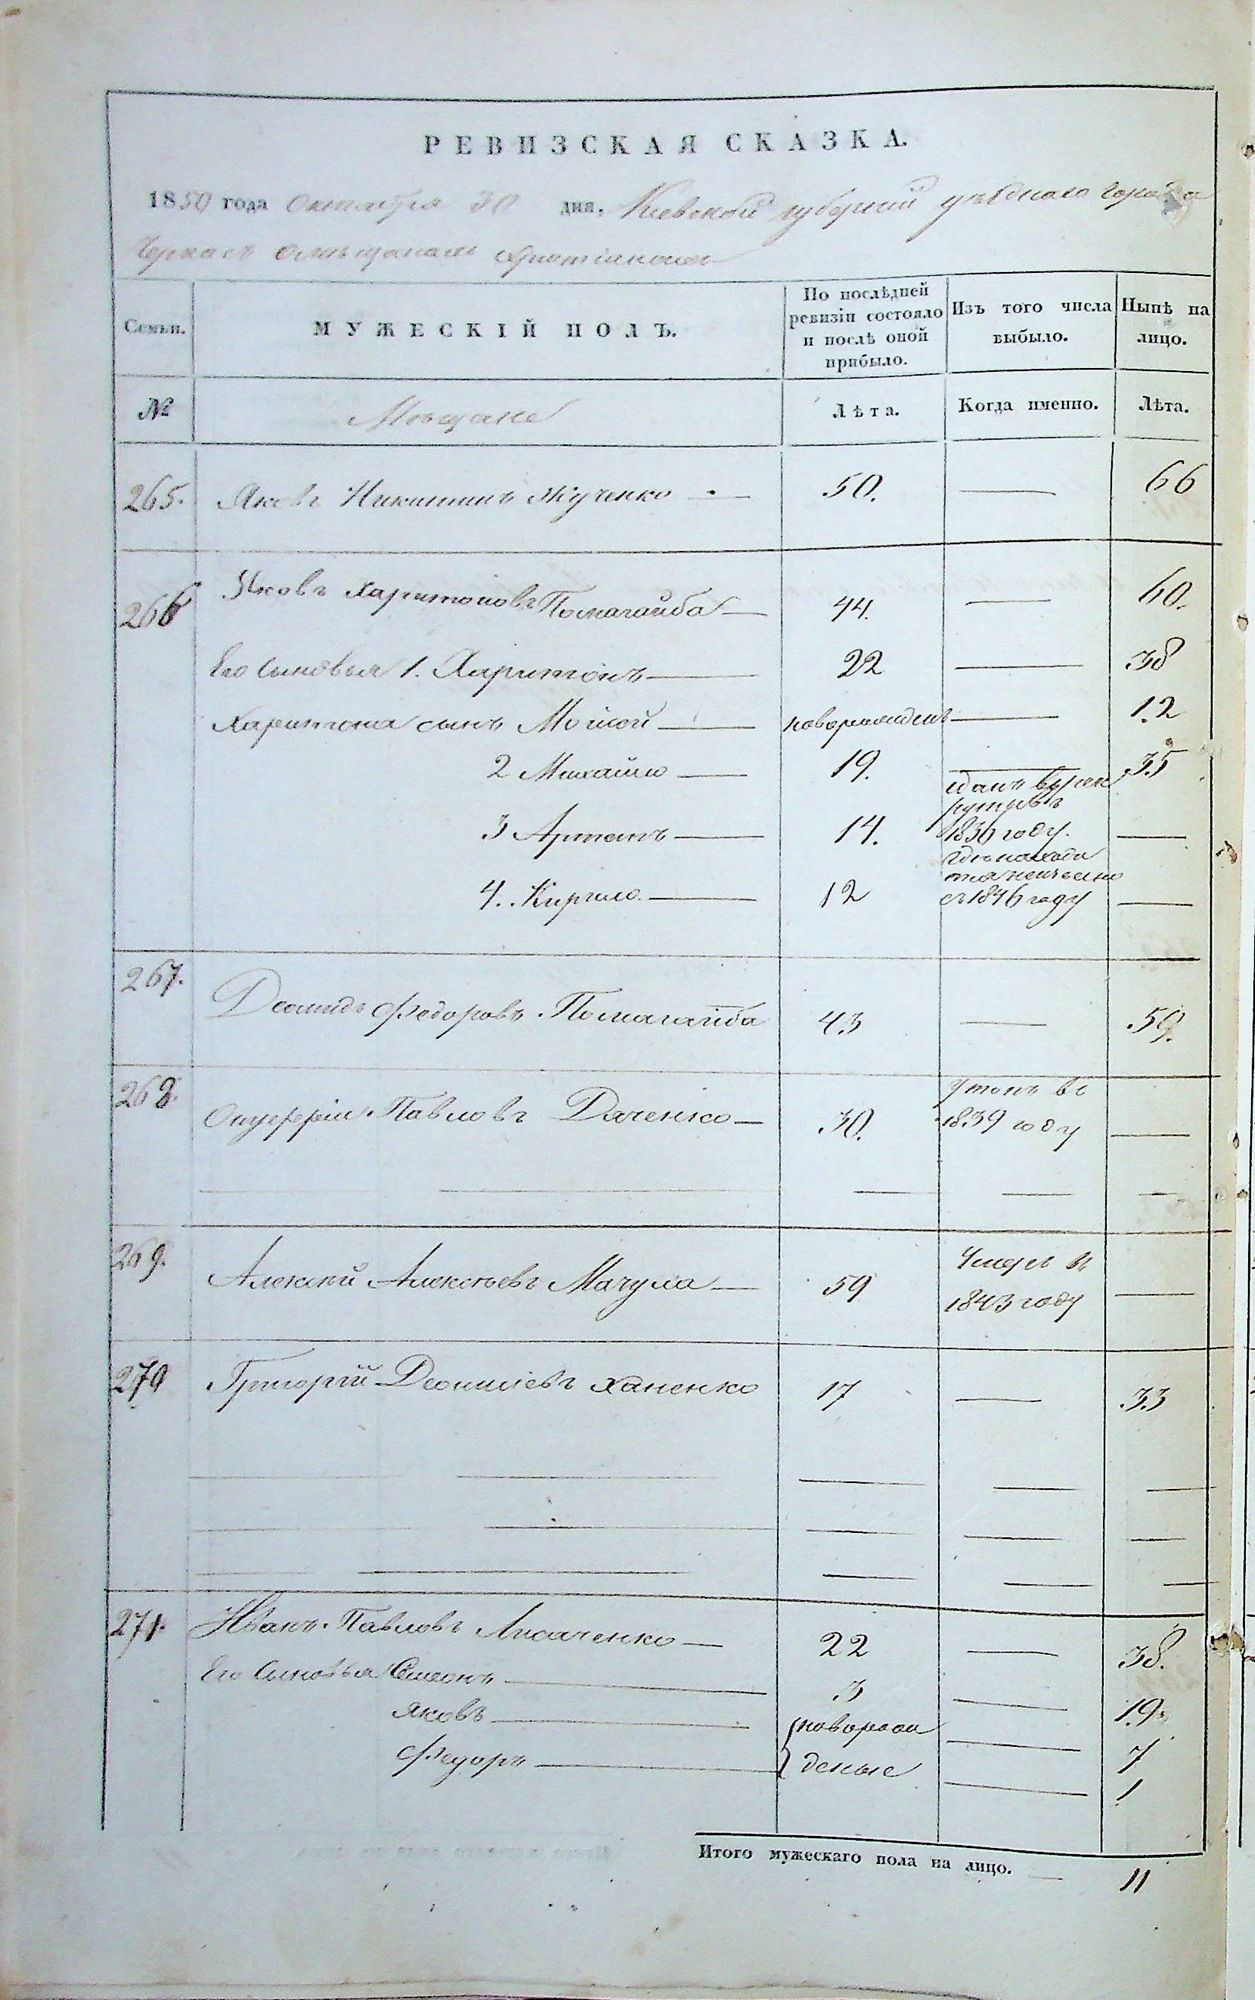 РЕВИЗСКАЯ СКАЗКА.
1850 года Октября 30 дня, Киевской губернии уѣзднаго города
Черкасъ о мѣщанахъ христіанахъ
Семьи.
МУЖЕСКІЙ ПОЛЪ.
По послѣдней ревизіи состояло и послѣ оной прибыло.
Изъ того числа выбыло.
Нынѣ на лицо.
№
Мѣщане
Лѣта.
Когда именно.
Лѣта.
265. Яковъ Никитинъ Жученко 50. 66
266 Яковъ Харитоновъ Помагайба 44. 60.
Его сыновья 1. Харитонъ 22 38
Харитона сынъ Мойсей новорожденъ 12
2 Михайло 19. 35
3 Артемъ 14. сданъ въ рекруты въ 1836 году.
4. Кирило 12 съ 1846 году
267. Деомидъ Федоровъ Помагайба 43 59.
268. Онуфрій Павловъ Даченко 30. утопъ въ 1839 году
269. Алексѣй Алексѣевъ Мачула 59 Умеръ въ 1843 году
270 Григорій Деонисіевъ Ханенко 17 33
271. Иванъ Павловъ Лисаченко 22 38.
Его сыновья Симеонъ 3 19.
Яковъ новорож 7
Федоръ деные 1
Итого мужескаго пола на лицо. 11